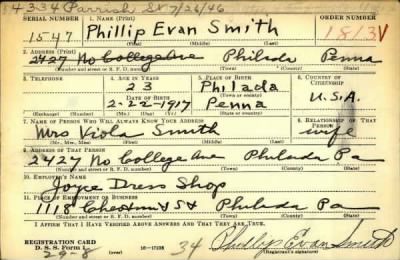 4334 Parrish St 7/26/46
SERIAL NUMBER 1. NAME (Print) ORDER NUMBER
1547 Phillip Evan Smith 1813V
(First) (Middle) (Last)
2. ADDRESS (Print)
2427 No College Ave Philada Penna
(Number and street or R. F. D. number) (Town) (County) (State)
3. TELEPHONE 4. AGE IN YEARS 5. PLACE OF BIRTH 6. COUNTRY OF CITIZENSHIP
23 Philada
DATE OF BIRTH (Town or county)
2-22-1917 Penna U.S.A.
(Mo.) (Day) (Yr.) (State or country)
7. NAME OF PERSON WHO WILL ALWAYS KNOW YOUR ADDRESS 8. RELATIONSHIP OF THAT PERSON
Mrs Viola Smith wife
(Mr., Mrs., Miss) (First) (Middle) (Last)
9. ADDRESS OF THAT PERSON
2427 No College Ave Philada Pa
(Number and street or R. F. D. number) (Town) (County) (State)
10. EMPLOYER'S NAME
Joyce Dress Shop
11. PLACE OF EMPLOYMENT OR BUSINESS
1118 Chestnut St Philada Pa
(Number and street or R. F. D. number) (Town) (County) (State)
I AFFIRM THAT I HAVE VERIFIED ABOVE ANSWERS AND THAT THEY ARE TRUE.
REGISTRATION CARD
D. S. S. Form 1 (over) 16—17105 34 Phillip Evan Smith
29-8 (Registrant's signature)